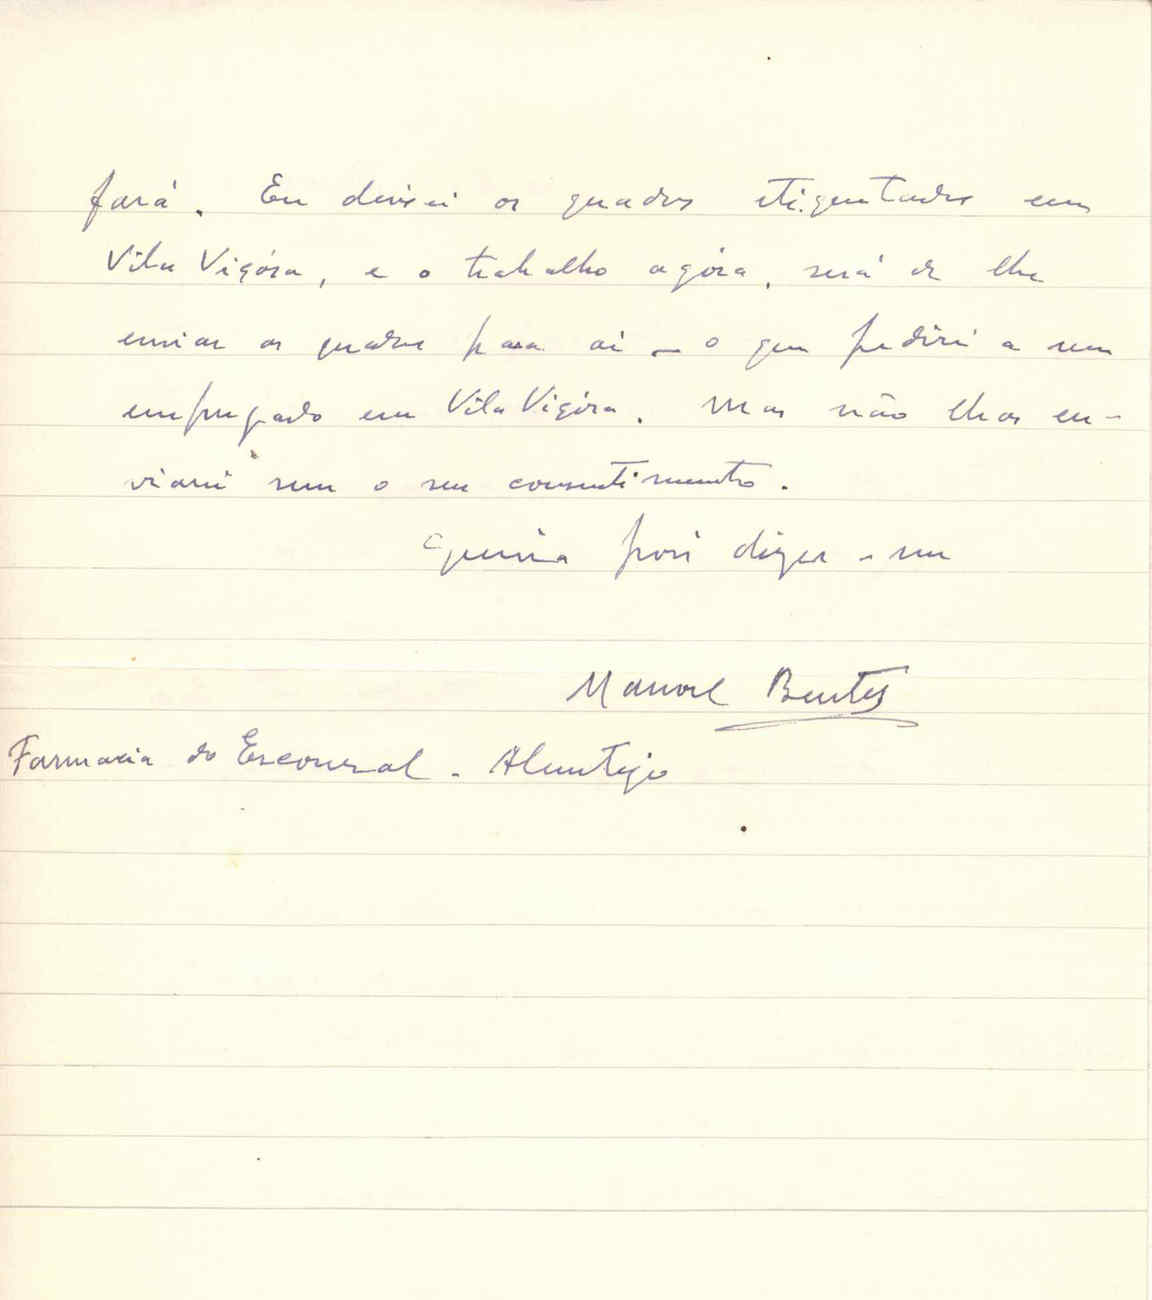 fará. Eu deixei os quadros etiquetados em
Vila Viçósa, e o trabalho agóra, será de lhe
enviar os quadros para aí — o que pedirei a um
empregado em Vila Viçósa. Mas não lhos en-
viarei sem o seu consentimento.
Queira pois dizer-me
Manoel Bentes
Farmacia do Escoural - Alentejo